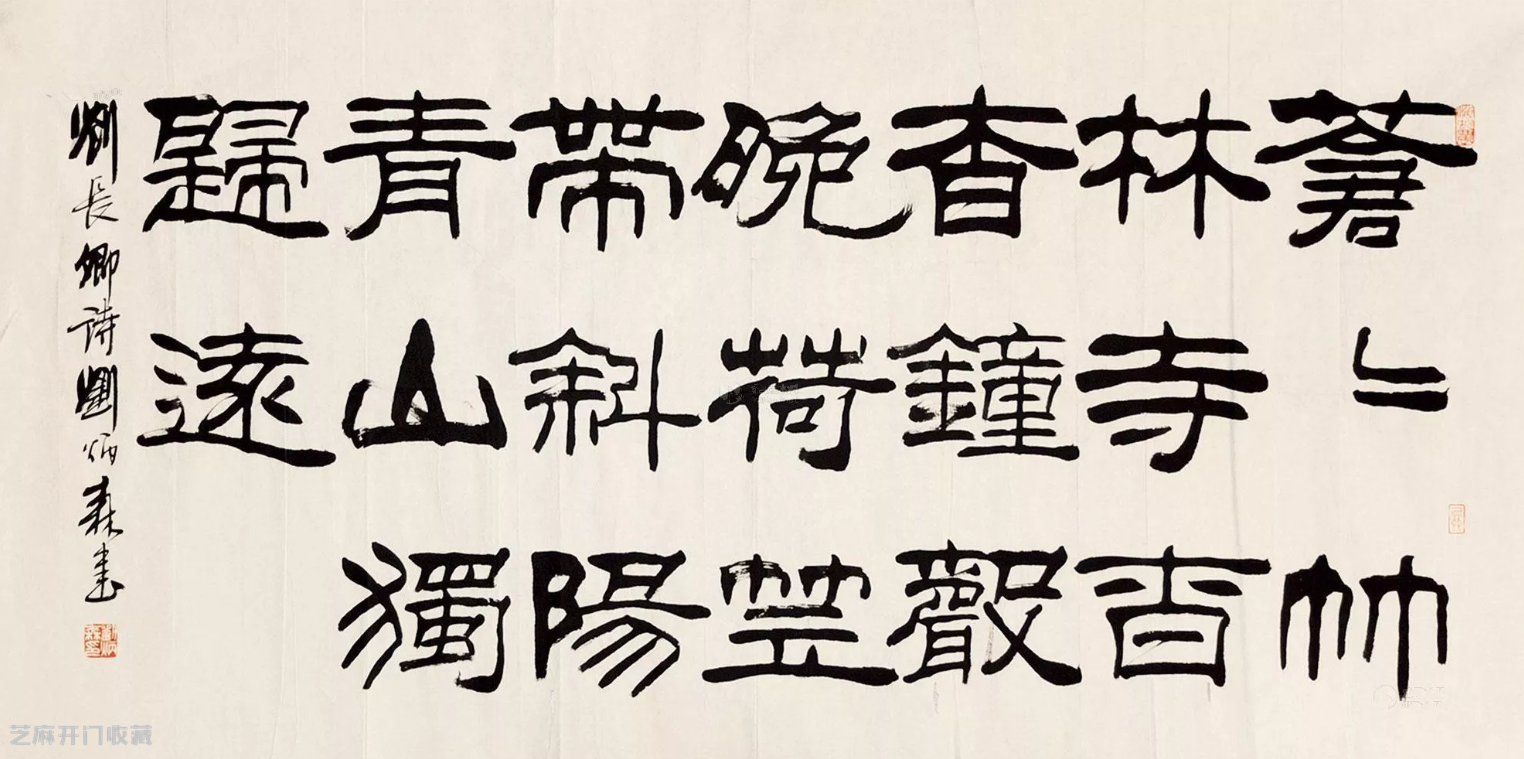 蒼〻竹
林寺杳
杳鐘聲
晚荷笠
帶斜陽
青山獨
歸遠
劉長卿詩劉炳森書
芝麻开门收藏